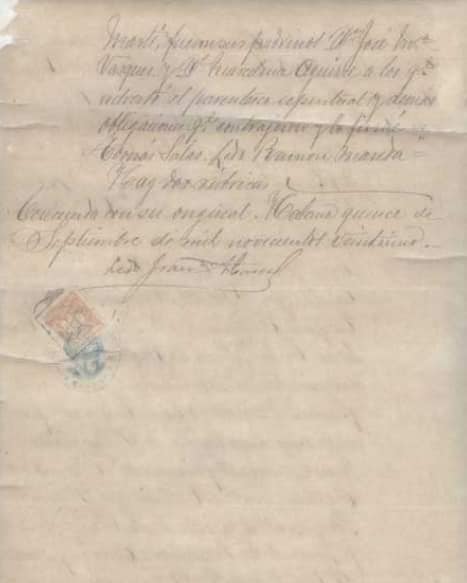 fueron sus padrinos Dn. José Ma.
Vasquez y Da. Aguirre a los qe.
advertí el parentesco espiritual y demas
obligaciones qe. contrajeron y lo firmé =
Tomás Salas. Ledo Ramon =
Hay dos rúbricas
Concuerda con su original. quince de
Septiembre de mil novecientos veintiuno.
Ledo Juan